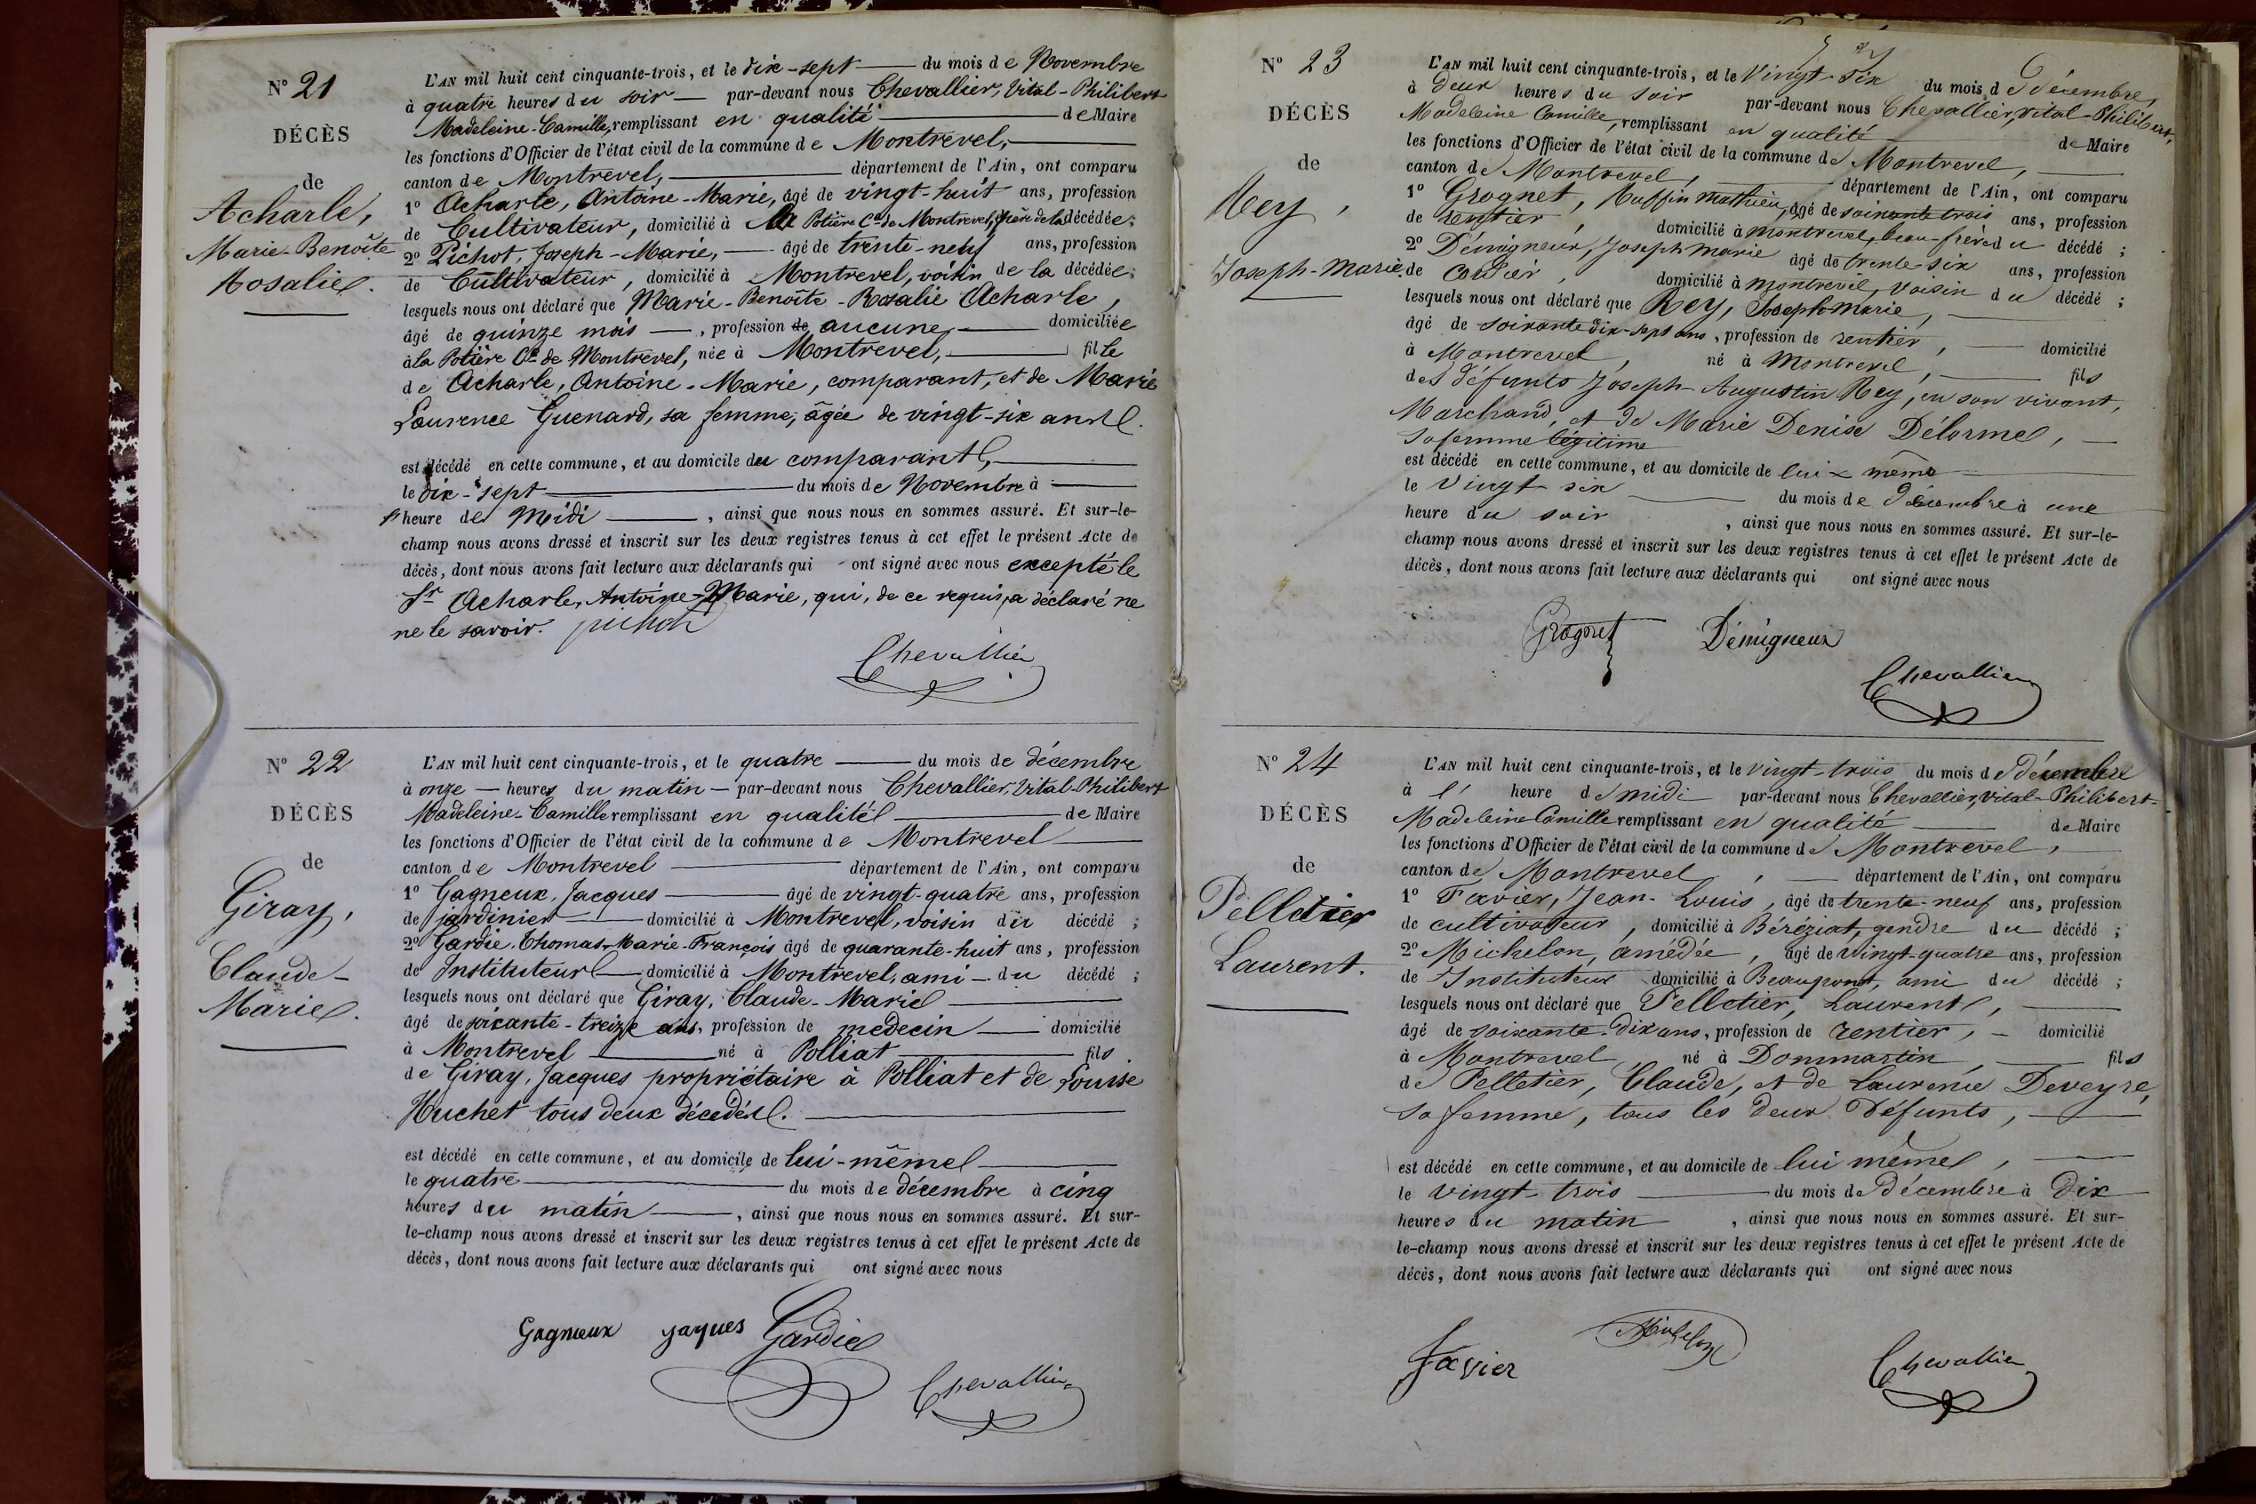 Nº 21
DÉCÈS
de
Acharle,
Marie-Benoîte
Rosalie.
L'AN mil huit cent cinquante-trois, et le dix-sept du mois de Novembre
à quatre heures du soir par-devant nous Chevallier, Vital-Philibert
Madeleine-Camille, remplissant en qualité de Maire
les fonctions d'Officier de l'état civil de la commune de Montrevel,
canton de Montrevel, département de l'Ain, ont comparu
1º Acharle, Antoine-Marie, âgé de vingt-huit ans, profession
de Cultivateur, domicilié à la Potière Cne de Montrevel, père de la décédée;
2º Pichot, Joseph-Marie, âgé de trente-neuf ans, profession
de Cultivateur, domicilié à Montrevel, voisin de la décédée;
lesquels nous ont déclaré que Marie-Benoîte-Rosalie Acharle,
âgé de quinze mois, profession de aucune, domiciliée
à la Potière Cne de Montrevel, née à Montrevel, fille
de Acharle, Antoine-Marie, comparant, et de Marie
Laurence Guenard, sa femme, âgée de vingt-six ans.
est décédé en cette commune, et au domicile du comparant,
le dix-sept du mois de Novembre à
heure de Midi, ainsi que nous nous en sommes assuré. Et sur-le-
champ nous avons dressé et inscrit sur les deux registres tenus à cet effet le présent Acte de
décès, dont nous avons fait lecture aux déclarants qui ont signé avec nous excepté le
Sr Acharle, Antoine-Marie, qui, de ce requis, a déclaré ne
ne le savoir. pichot
Chevallier
Nº 22
DÉCÈS
de
Giray,
Claude-
Marie.
L'AN mil huit cent cinquante-trois, et le quatre du mois de décembre
à onze heures du matin par-devant nous Chevallier, Vital-Philibert
Madeleine-Camille remplissant en qualité de Maire
les fonctions d'Officier de l'état civil de la commune de Montrevel
canton de Montrevel département de l'Ain, ont comparu
1º Gagneux, Jacques âgé de vingt-quatre ans, profession
de jardinier domicilié à Montrevel, voisin du décédé ;
2º Gardie, Thomas-Marie-François âgé de quarante-huit ans, profession
de Instituteur domicilié à Montrevel, ami du décédé ;
lesquels nous ont déclaré que Giray, Claude-Marie
âgé de soixante-treize ans, profession de medecin domicilié
à Montrevel né à Polliat fils
de Giray, Jacques propriétaire à Polliat et de Louise
Huchet tous deux décédés.
est décédé en cette commune, et au domicile de lui-même
le quatre du mois de décembre à cinq
heures du matin, ainsi que nous nous en sommes assuré. Et sur-
le-champ nous avons dressé et inscrit sur les deux registres tenus à cet effet le présent Acte de
décès, dont nous avons fait lecture aux déclarants qui ont signé avec nous
Gagnieux jaques Gardie
Chevallier
Nº 23
DÉCÈS
de
Rey,
Joseph-Marie
L'AN mil huit cent cinquante-trois, et le Vingt-Six du mois de décembre,
à Deux heures du soir par-devant nous Chevallier, Vital-Philibert,
Madeleine Camille, remplissant en qualité de Maire
les fonctions d'Officier de l'état civil de la commune de Montrevel,
canton de Montrevel, département de l'Ain, ont comparu
1º Grognet, Ruffin Mathieu, âgé de soixante trois ans, profession
de rentier, domicilié à Montrevel, beau-frère du décédé ;
2º Démigneux, Joseph Marie âgé de trente-six ans, profession
de cordier, domicilié à Montrevel, voisin du décédé ;
lesquels nous ont déclaré que Rey, Joseph-Marie,
âgé de soixante dix-sept ans, profession de rentier, domicilié
à Montrevel, né à Montrevel, fils
des défunts Joseph-Augustin Rey, en son vivant,
Marchand, et de Marie Denise Délorme,
sa femme légitime
est décédé en cette commune, et au domicile de lui même
le Vingt six du mois de Décembre à une
heure du soir, ainsi que nous nous en sommes assuré. Et sur-le-
champ nous avons dressé et inscrit sur les deux registres tenus à cet effet le présent Acte de
décès, dont nous avons fait lecture aux déclarants qui ont signé avec nous
Grognet Démigneux
Chevallier
Nº 24
DÉCÈS
de
Pelletier
Laurent.
L'AN mil huit cent cinquante-trois, et le vingt-trois du mois de décembre
à l' heure de midi par-devant nous Chevallier, Vital-Philibert-
Madeleine Camille remplissant en qualité de Maire
les fonctions d'Officier de l'état civil de la commune de Montrevel,
canton de Montrevel, département de l'Ain, ont comparu
1º Favier, Jean-Louis, âgé de trente-neuf ans, profession
de cultivateur, domicilié à Béréziat, gendre du décédé ;
2º Michelon, amédée, âgé de vingt-quatre ans, profession
de Instituteur domicilié à Beaupont, ami du décédé ;
lesquels nous ont déclaré que Pelletier, Laurent,
âgé de soixante-dix ans, profession de rentier, domicilié
à Montrevel, né à Dommartin, fils
de Pelletier, Claude, et de Laurence Deveyre,
sa femme, tous les deux Défunts,
est décédé en cette commune, et au domicile de lui même,
le vingt trois du mois de Décembre à Dix
heures du matin, ainsi que nous nous en sommes assuré. Et sur-
le-champ nous avons dressé et inscrit sur les deux registres tenus à cet effet le présent Acte de
décès, dont nous avons fait lecture aux déclarants qui ont signé avec nous
Favier Michelon
Chevallier